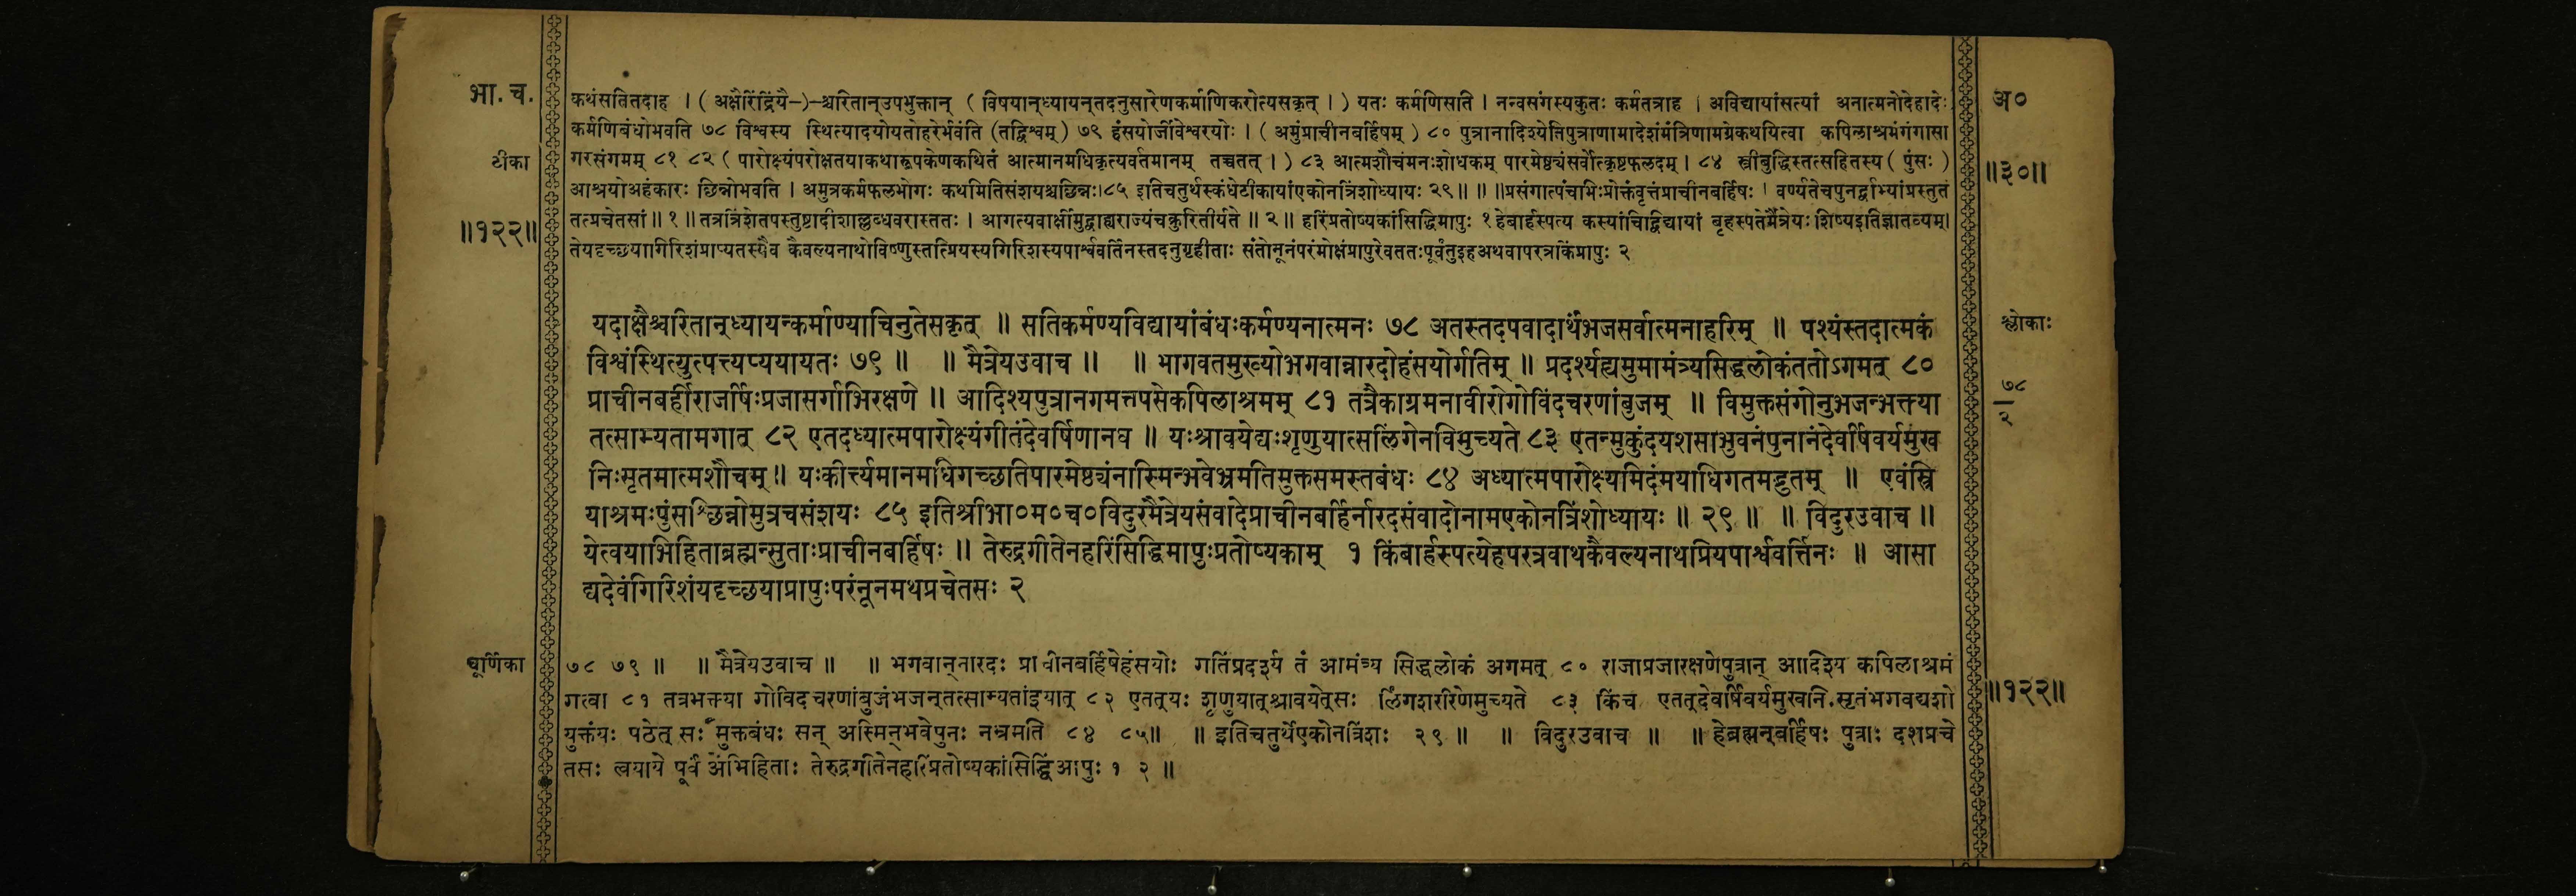 भा. च.
कथंसतितदाह । ( अक्षैरिंद्रियै–)–श्चरितान्उपभुक्तान् ( विषयान्ध्यायन्तदनुसारेणकर्माणिकरोत्यसकृत् । ) यतः कर्मणिसति । नन्वसंगस्यकुतः कर्मतत्राह । अविद्यायांसत्यां अनात्मनोदेहादेः
अ०
कर्मणिबंधोभवति ७८ विश्वस्य स्थित्यादयोयतोहरेर्भवंति (तद्विश्वम्) ७९ हंसयोर्जीवेश्वरयोः । ( अमुंप्राचीनबर्हिषम् ) ८० पुत्रानादिश्येतिपुत्राणामादेशंमंत्रिणामग्रेकथयित्वा कपिलाश्रमंगंगासा
टीका
गरसंगमम् ८१ ८२ ( पारोक्ष्यंपरोक्षतयाकथारूपकेणकथितं आत्मानमधिकृत्यवर्तमानम् तच्चतत् । ) ८३ आत्मशौचंमनःशोधकम् पारमेष्ठ्यंसर्वोत्कृष्टफलदम् । ८४ स्त्रीबुद्धिस्तत्सहितस्य ( पुंसः )
॥३०॥
आश्रयोअहंकारः छिन्नोभवति । अमुत्रकर्मफलभोगः कथमितिसंशयश्चछिन्नः।८५ इतिचतुर्थस्कंधेटीकायांएकोनत्रिंशोध्यायः २९॥ ॥ ॥प्रसंगात्पंचाभिःप्रोक्तंवृत्तंप्राचीनबर्हिषः । वर्ण्यतेचपुनर्द्वाभ्यांप्रस्तुतं
तत्प्रचेतसां ॥ १ ॥ तत्रत्रिंशेतपस्तुष्टादीशाल्लब्धवरास्ततः । आगत्यवार्क्षीमुद्वाह्यराज्यंचक्रुरितीर्यते ॥ २ ॥ हरिंप्रतोष्यकांसिद्धिमापुः १ हेबार्हस्पत्य कस्यांचिद्विद्यायां बृहस्पतेर्मैत्रेयः शिष्यइतिज्ञातव्यम्।
॥१२२॥
तेयदृच्छयागिरिशंप्राप्यतस्यैव कैवल्यनाथोविष्णुस्तत्प्रियस्यगिरिशस्यपार्श्ववर्तिनस्तदनुगृहीताः संतोनूनंपरंमोक्षंप्रापुरेवततःपूर्वंतुइहअथवापरत्रकिंप्रापुः २
यदाक्षैश्चरितान्ध्यायन्कर्माण्याचिनुतेसकृत् ॥ सतिकर्मण्यविद्यायांबंधःकर्मण्यनात्मनः ७८ अतस्तदपवादार्थंभजसर्वात्मनाहरिम् ॥ पश्यंस्तदात्मकं
श्लोकाः
विश्वंस्थित्युत्पत्त्यप्ययायतः ७९ ॥ ॥ मैत्रेयउवाच ॥ ॥ भागवतमुख्योभगवान्नारदोहंसयोर्गतिम् ॥ प्रदर्श्यह्यमुमामंत्र्यसिद्धलोकंततोऽगमत् ८०
७८
२
प्राचीनबर्हीराजर्षिःप्रजासर्गाभिरक्षणे ॥ आदिश्यपुत्रानगमत्तपसेकपिलाश्रमम् ८१ तत्रैकाग्रमनावीरोगोविंदचरणांबुजम् ॥ विमुक्तसंगोनुभजन्भक्त्या
तत्साम्यतामगात् ८२ एतदध्यात्मपारोक्ष्यंगीतंदेवर्षिणानघ ॥ यःश्रावयेद्यःशृणुयात्सलिंगेनविमुच्यते ८३ एतन्मुकुंदयशसाभुवनंपुनानंदेवर्षिवर्यमुख
निःसृतमात्मशौचम् ॥ यःकीर्त्त्यमानमधिगच्छतिपारमेष्ठ्यंनास्मिन्भवेभ्रमतिमुक्तसमस्तबंधः ८४ अध्यात्मपारोक्ष्यमिदंमयाधिगतमद्भुतम् ॥ एवंस्त्रि
याश्रमःपुंसश्छिन्नोमुत्रचसंशयः ८५ इतिश्रीभा०म०च०विदुरमैत्रेयसंवादेप्राचीनबर्हिर्नारदसंवादोनामएकोनत्रिंशोध्यायः ॥ २९ ॥ ॥ विदुरउवाच ॥
येत्वयाभिहिताब्रह्मन्सुताःप्राचीनबर्हिषः ॥ तेरुद्रगीतेनहरिंसिद्धिमापुःप्रतोष्यकाम् १ किंबार्हस्पत्येहपरत्रवाथकैवल्यनाथप्रियपार्श्ववर्त्तिनः ॥ आसा
द्यदेवंगिरिशंयदृच्छयाप्रापुःपरंनूनमथप्रचेतसः २
चूर्णिका
७८ ७९ ॥ ॥ मैत्रेयउवाच ॥ ॥ भगवान्नारदः प्राचीनबर्हिषेहंसयोः गतिंप्रदर्श्य तं आमंत्र्य सिद्धलोकं अगमत् ८० राजाप्रजारक्षणेपुत्रान् आदिश्य कपिलाश्रमं
गत्वा ८१ तत्रभक्त्या गोविंदचरणांबुजंभजन्तत्साम्यतांइयात् ८२ एतत्यः शृणुयात्श्रावयेत्सः लिंगशरीरेणमुच्यते ८३ किंच एतत्देवर्षिवर्यमुखनिःसृतंभगवद्यशो
॥१२२॥
युक्तंयः पठेत् सः मुक्तबंधः सन् अस्मिन्भवेपुनः नभ्रमति ८४ ८५॥ ॥ इतिचतुर्थेएकोनत्रिंशः २९ ॥ ॥ विदुरउवाच ॥ ॥ हेब्रह्मन्बर्हिषः पुत्राः दशप्रचे
तसः त्वयाये पूर्वं अभिहिताः तेरुद्रगीतेनहरिंप्रतोष्यकांसिद्धिंआपुः १ २ ॥